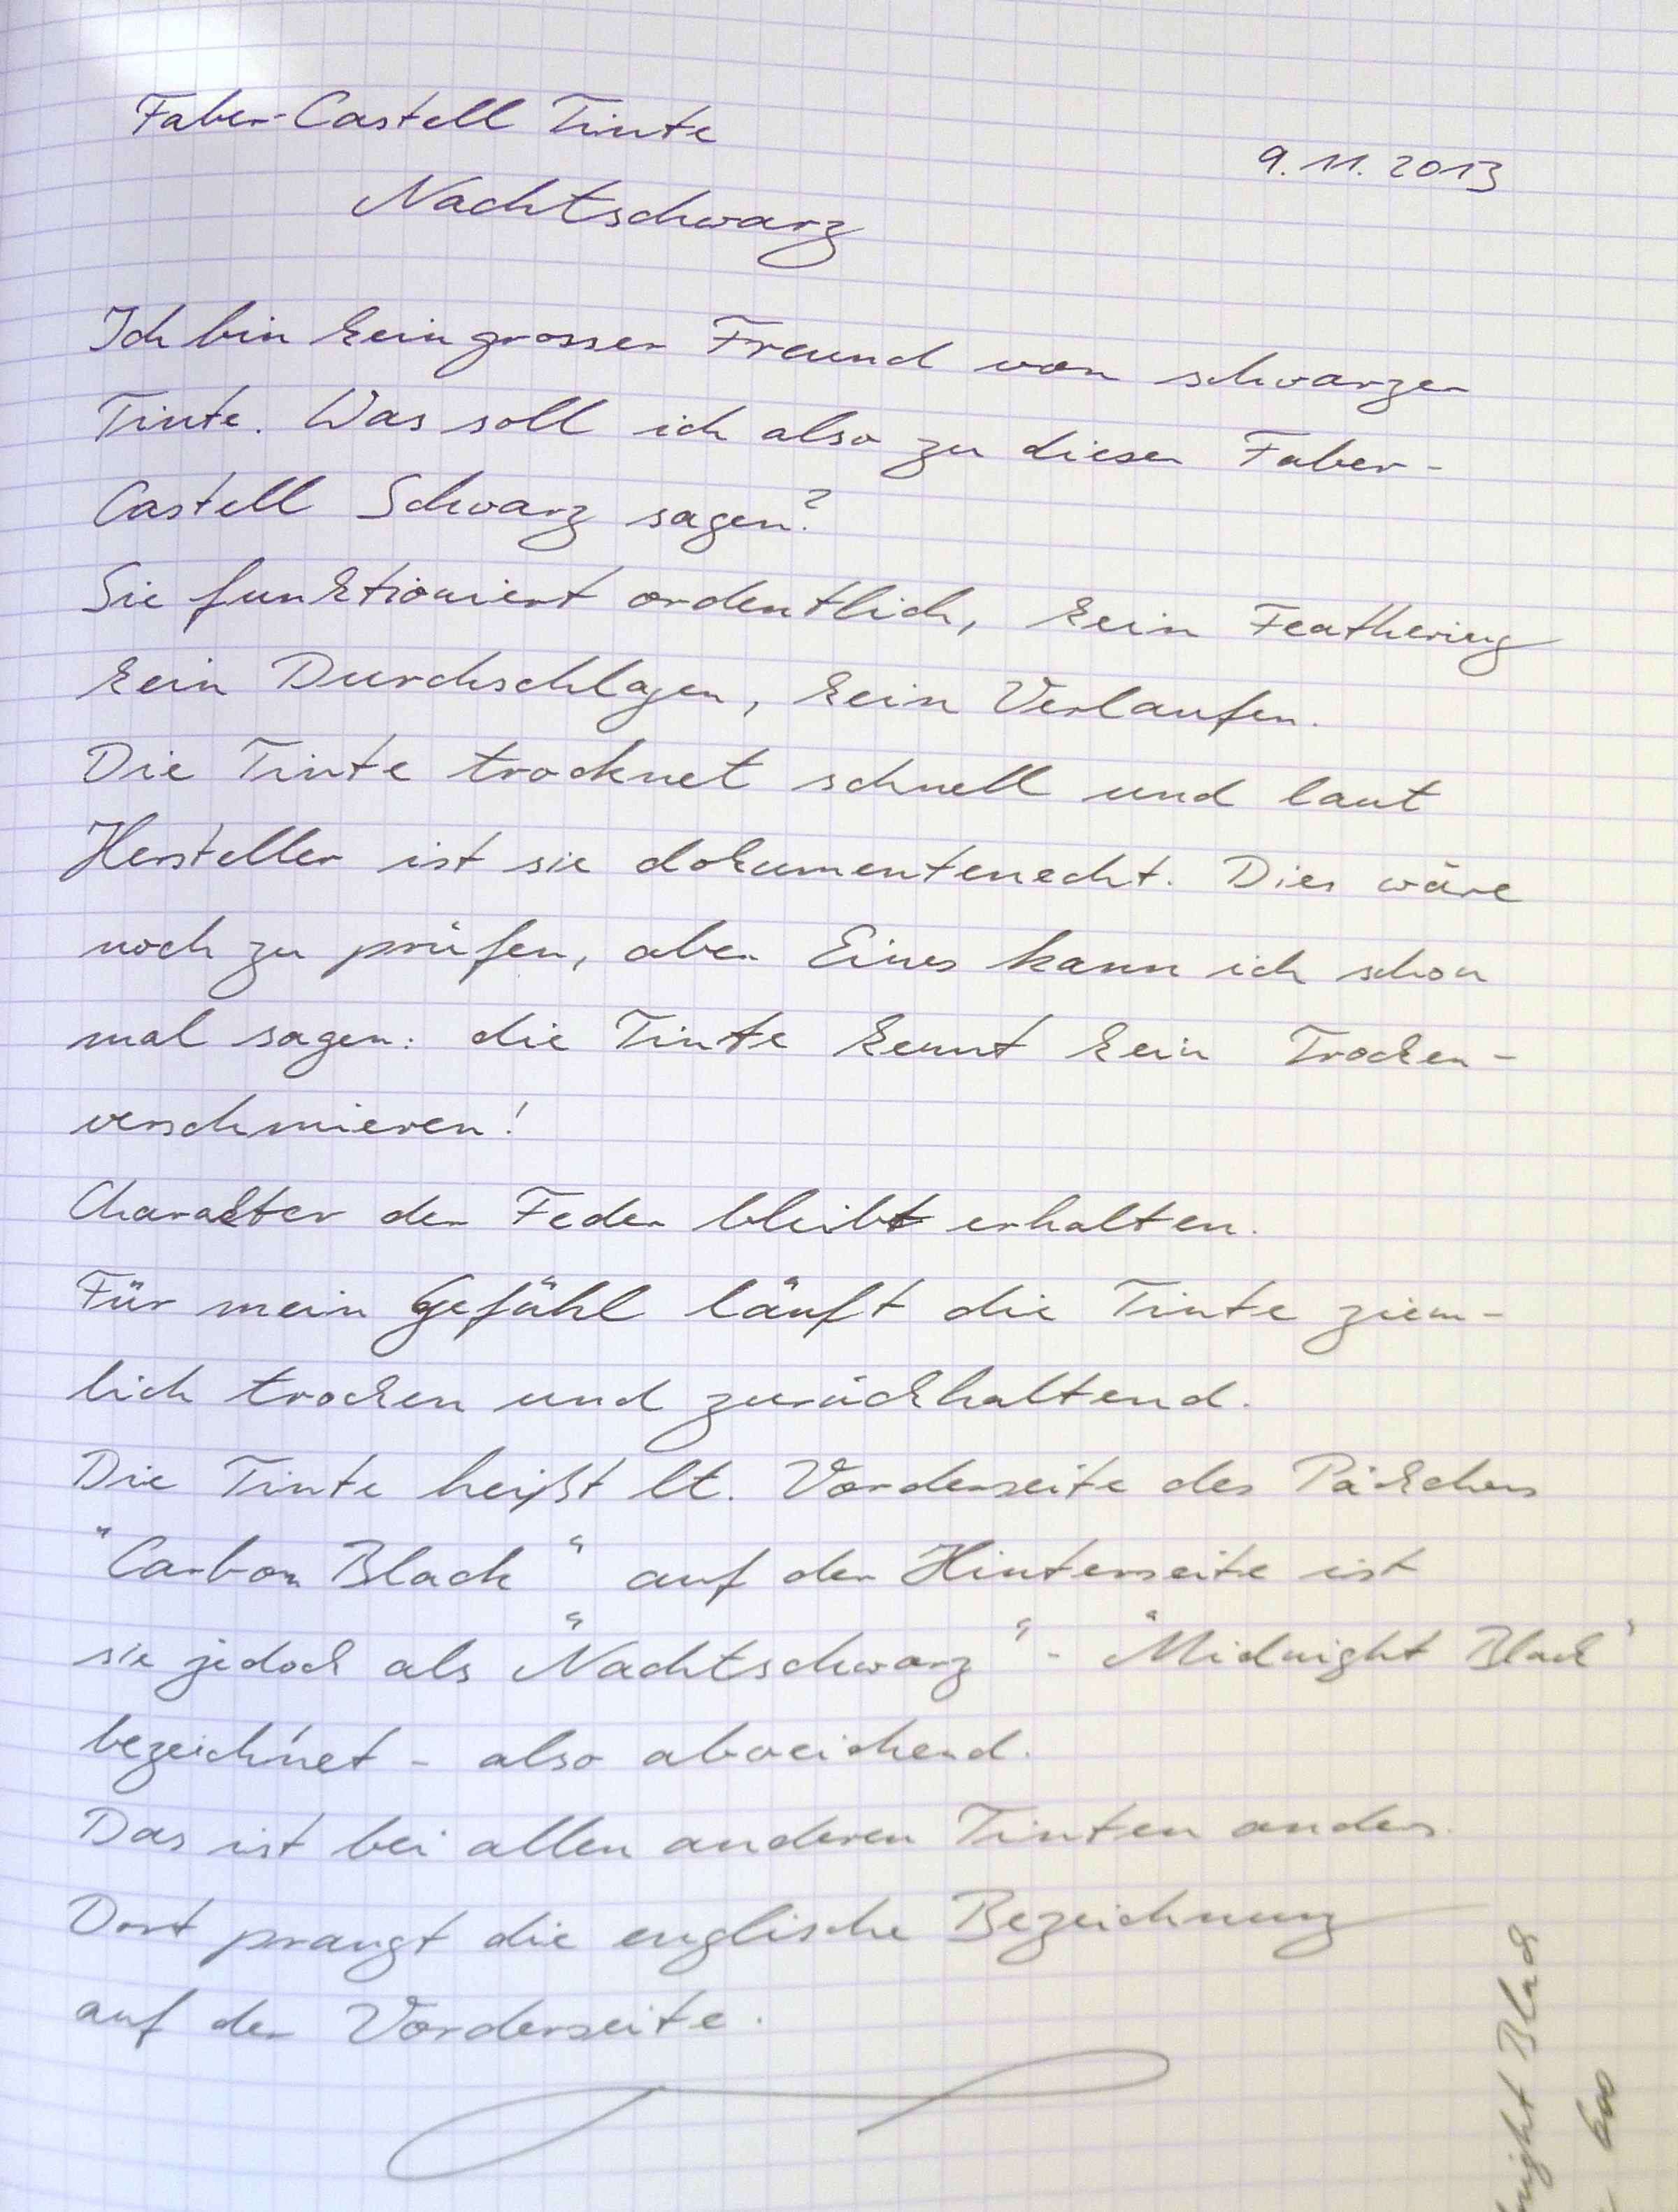 Faber-Castell Tinte
9.11.2013
Nachtschwarz
Ich bin kein grosser Freund von schwarzer
Tinte. Was soll ich also zu dieser Faber-
Castell Schwarz sagen?
Sie funktioniert ordentlich, kein Feathering
kein Durchschlagen, kein Verlaufen.
Die Tinte trocknet schnell und laut
Hersteller ist sie dokumentenecht. Dies wäre
noch zu prüfen, aber Eines kann ich schon
mal sagen: die Tinte kennt kein Trocken-
verschmieren!
Charakter der Feder bleibt erhalten.
Für mein Gefühl läuft die Tinte ziem-
lich trocken und zurückhaltend.
Die Tinte heißt lt. Vorderseite des Päckchens
"Carbon Black" auf der Hinterseite ist
sie jedoch als "Nachtschwarz" - "Midnight Black"
bezeichnet - also abweichend.
Das ist bei allen anderen Tinten anders.
Dort prangt die englische Bezeichnung
auf der Vorderseite.
Black